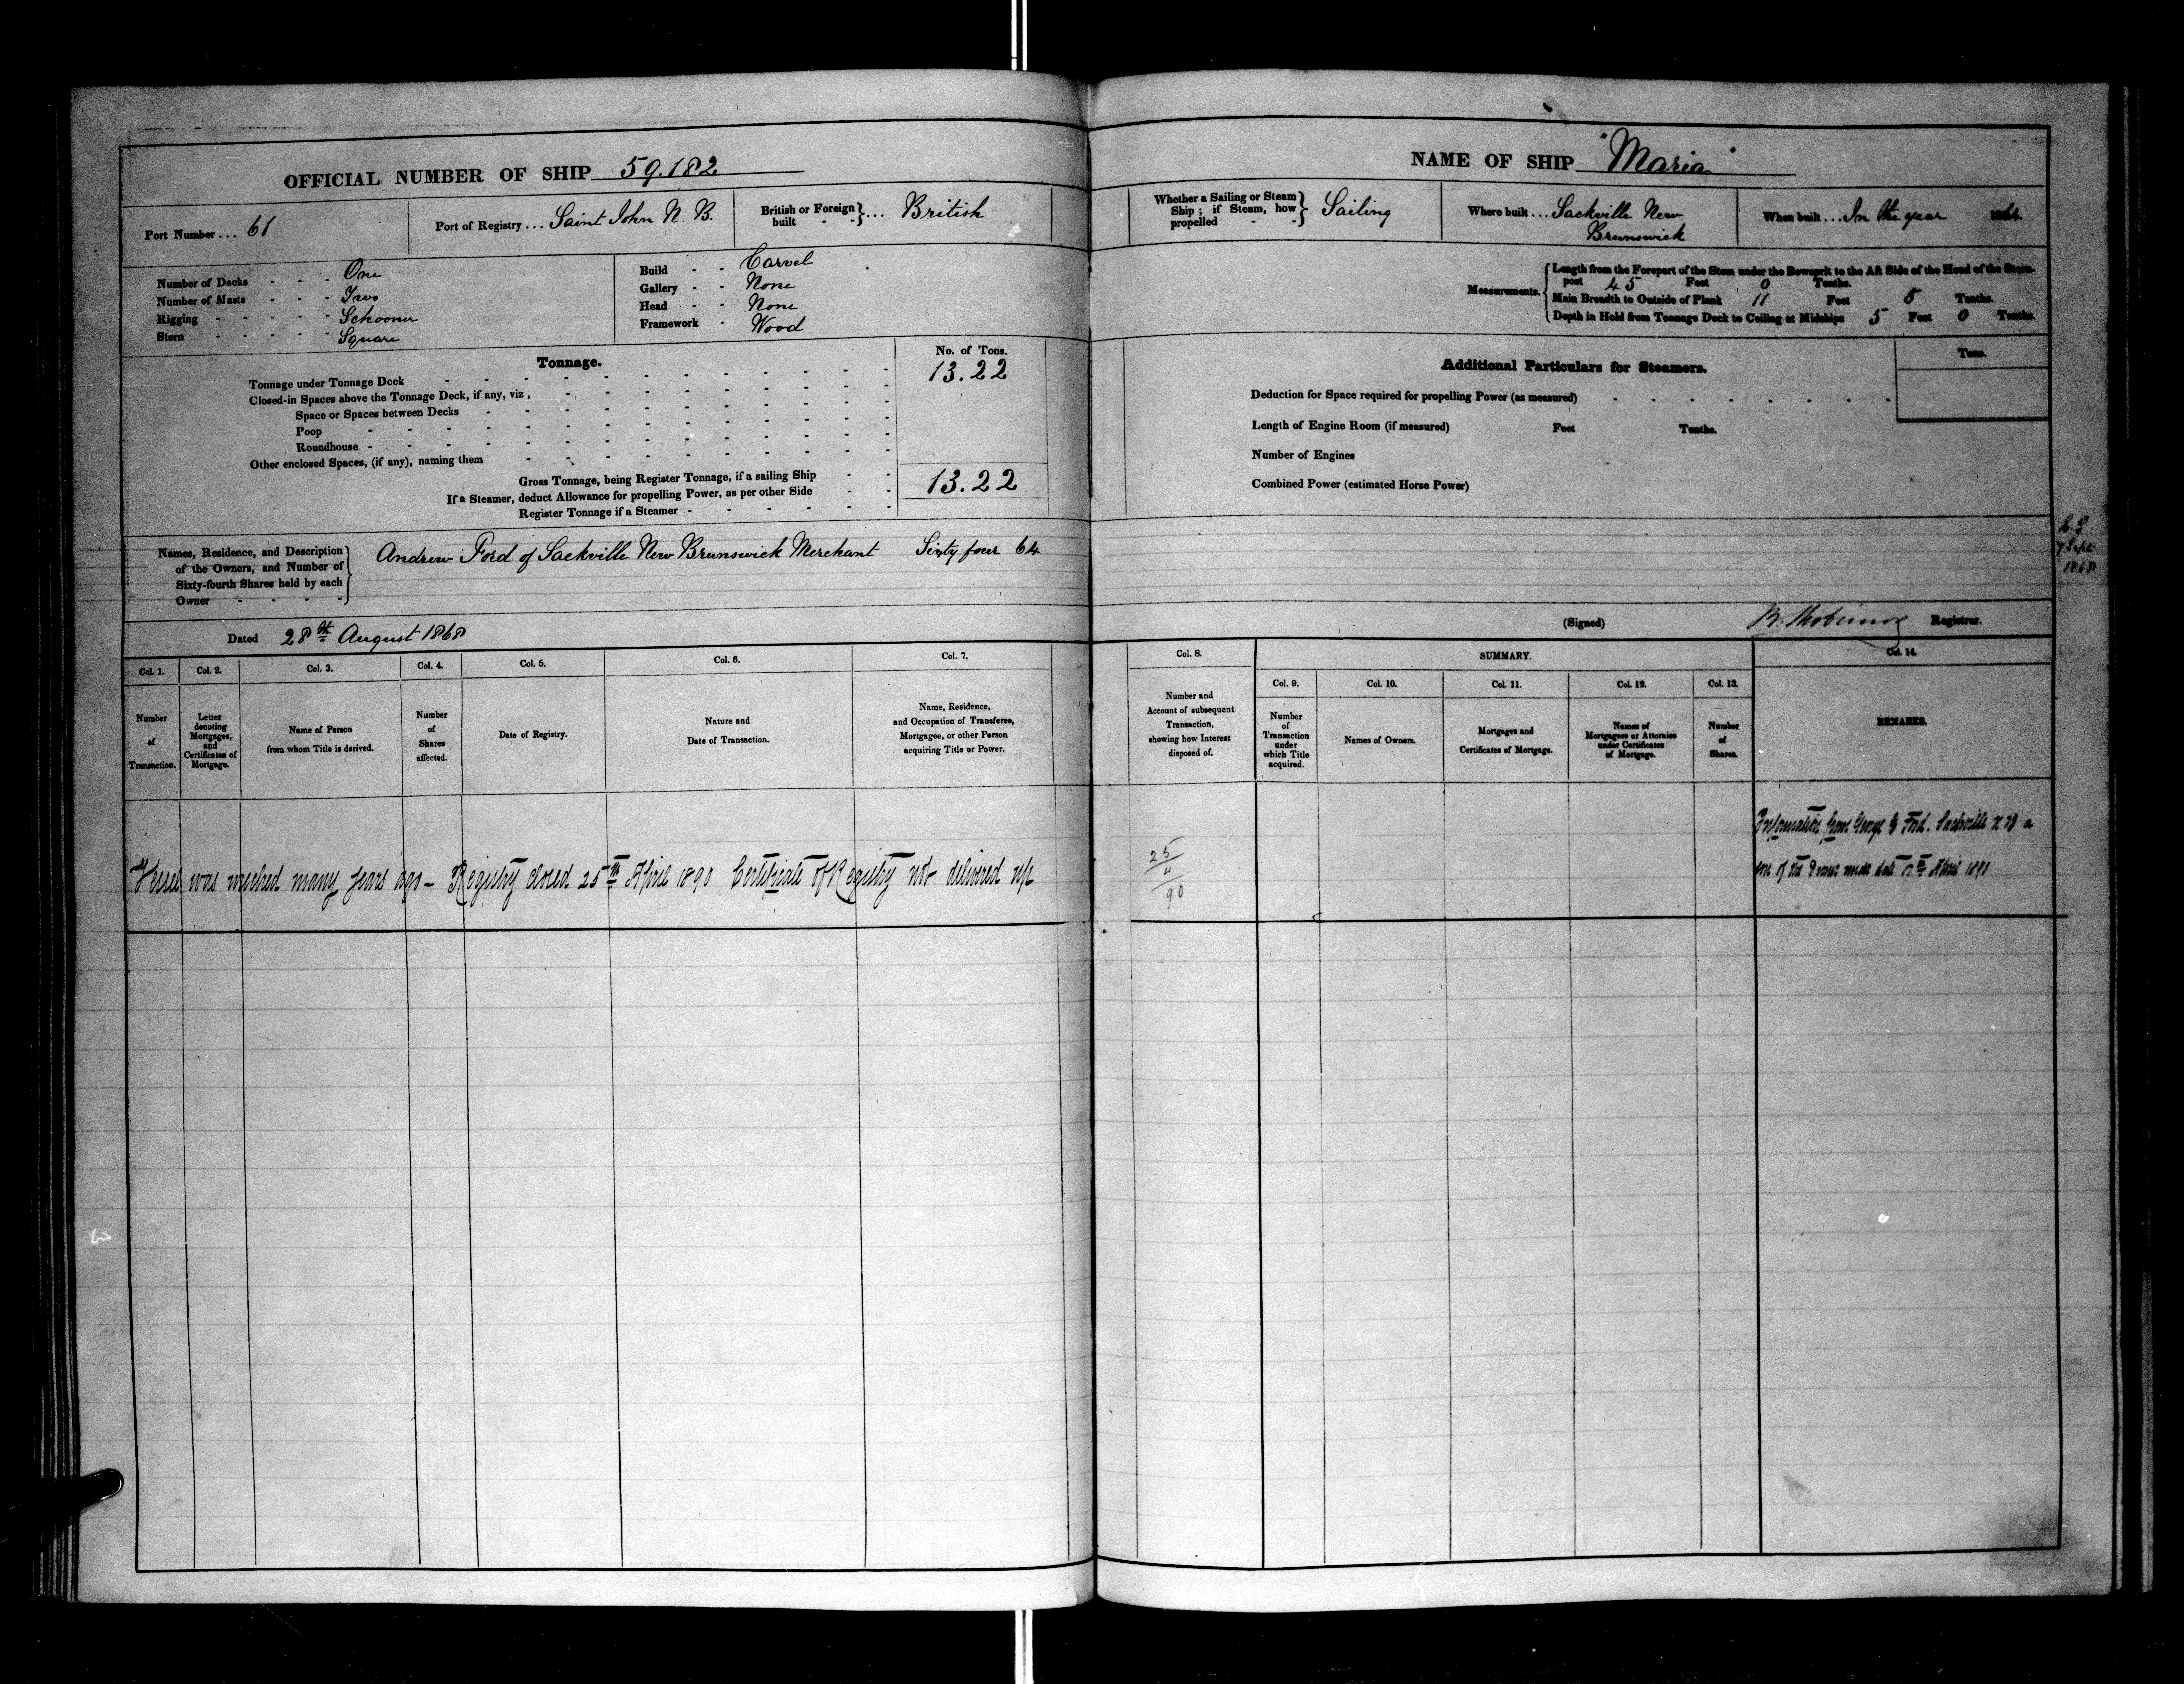 OFFICIAL NUMBER OF SHIP 59.182
Port Number ... 61
Port of Registry ... Saint John N. B.
British or Foreign built - - } ... British
Number of Decks - - - One
Number of Masts - - - Two
Rigging - - - - - Schooner
Stern - - - - - Square
Build - - Carvel
Gallery - - None
Head - - None
Framework - Wood
Tonnage.
No. of Tons.
Tonnage under Tonnage Deck 13.22
Closed-in Spaces above the Tonnage Deck, if any, viz,
Space or Spaces between Decks
Poop
Roundhouse
Other enclosed Spaces, (if any), naming them
Gross Tonnage, being Register Tonnage, if a sailing Ship 13.22
If a Steamer, deduct Allowance for propelling Power, as per other Side
Register Tonnage if a Steamer
Names, Residence, and Description
of the Owners, and Number of
Sixty-fourth Shares held by each
Owner
Andrew Ford of Sackville New Brunswick Merchant Sixty four 64
Dated 28th August 1868
Col. 1. Col. 2. Col. 3. Col. 4. Col. 5. Col. 6. Col. 7.
Number of Transaction.
Letter denoting Mortgages, and Certificates of Mortgage.
Name of Person from whom Title is derived.
Number of Shares affected.
Date of Registry.
Nature and Date of Transaction.
Name, Residence, and Occupation of Transferee, Mortgagee, or other Person acquiring Title or Power.
Vessel was wrecked many years ago – Registry closed 25th April 1890 Certificate of Registry not delivered up
NAME OF SHIP "Maria"
Whether a Sailing or Steam Ship; if Steam, how propelled - - } Sailing
Where built ... Sackville New
Brunswick
When built ... In the year 1864
Measurements.
Length from the Forepart of the Stem under the Bowsprit to the Aft Side of the Head of the Stern-
post 45 Feet 0 Tenths.
Main Breadth to Outside of Plank 11 Feet 5 Tenths.
Depth in Hold from Tonnage Deck to Ceiling at Midships 5 Feet 0 Tenths.
Additional Particulars for Steamers.
Tons.
Deduction for Space required for propelling Power (as measured)
Length of Engine Room (if measured) Feet Tenths.
Number of Engines
Combined Power (estimated Horse Power)
7 Sept
1868
(Signed) Registrar.
Col. 8. SUMMARY. Col. 14.
Col. 9. Col. 10. Col. 11. Col. 12. Col. 13.
Number and Account of subsequent Transaction, showing how Interest disposed of.
Number of Transaction under which Title acquired.
Names of Owners.
Mortgages and Certificates of Mortgage.
Names of Mortgagees or Attornies under Certificates of Mortgage.
Number of Shares.
REMARKS.
25
4
90
Information from George Ford. Sackville N B a
son of the Owner under date April 1890